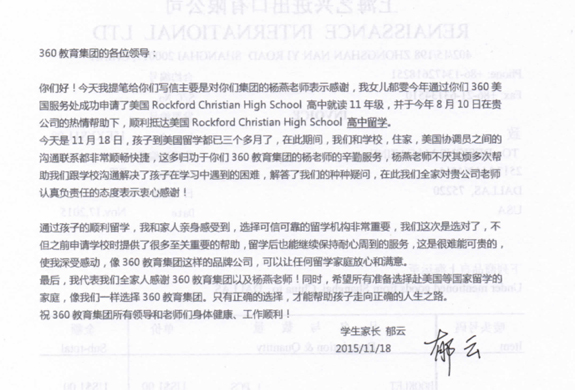 360 教育集团的各位领导：
你们好！今天我提笔给你们写信主要是对你们集团的杨燕老师表示感谢，我女儿郁雯今年通过你们 360 美
国服务处成功申请了美国 Rockford Christian High School 高中就读 11 年级，并于今年 8 月 10 日在贵
公司的热情帮助下，顺利抵达美国 Rockford Christian High School 高中留学。
今天是 11 月 18 日，孩子到美国留学都已三个多月了，在此期间，我们和学校，住家，美国协调员之间的
沟通联系都非常顺畅快捷，这多归功于你们 360 教育集团的杨老师的辛勤服务，杨燕老师不厌其烦多次帮
助我们跟学校沟通解决了孩子在学习中遇到的困难，解答了我们的种种疑问，在此我们全家对贵公司老师
认真负责任的态度表示衷心感谢！
通过孩子的顺利留学，我和家人亲身感受到，选择可信可靠的留学机构非常重要，我们这次是选对了，不
但之前申请学校时提供了很多至关重要的帮助，留学后也能继续保持耐心周到的服务，这是很难能可贵的，
使我深受感动，像 360 教育集团这样的品牌公司，可以让任何留学家庭放心和满意。
最后，我代表我们全家人感谢 360 教育集团以及杨燕老师！同时，希望所有准备选择赴美国等国家留学的
家庭，像我们一样选择 360 教育集团。只有正确的选择，才能帮助孩子走向正确的人生之路。
祝 360 教育集团所有领导和老师们身体健康、工作顺利！
学生家长 郁云
2015/11/18
郁云